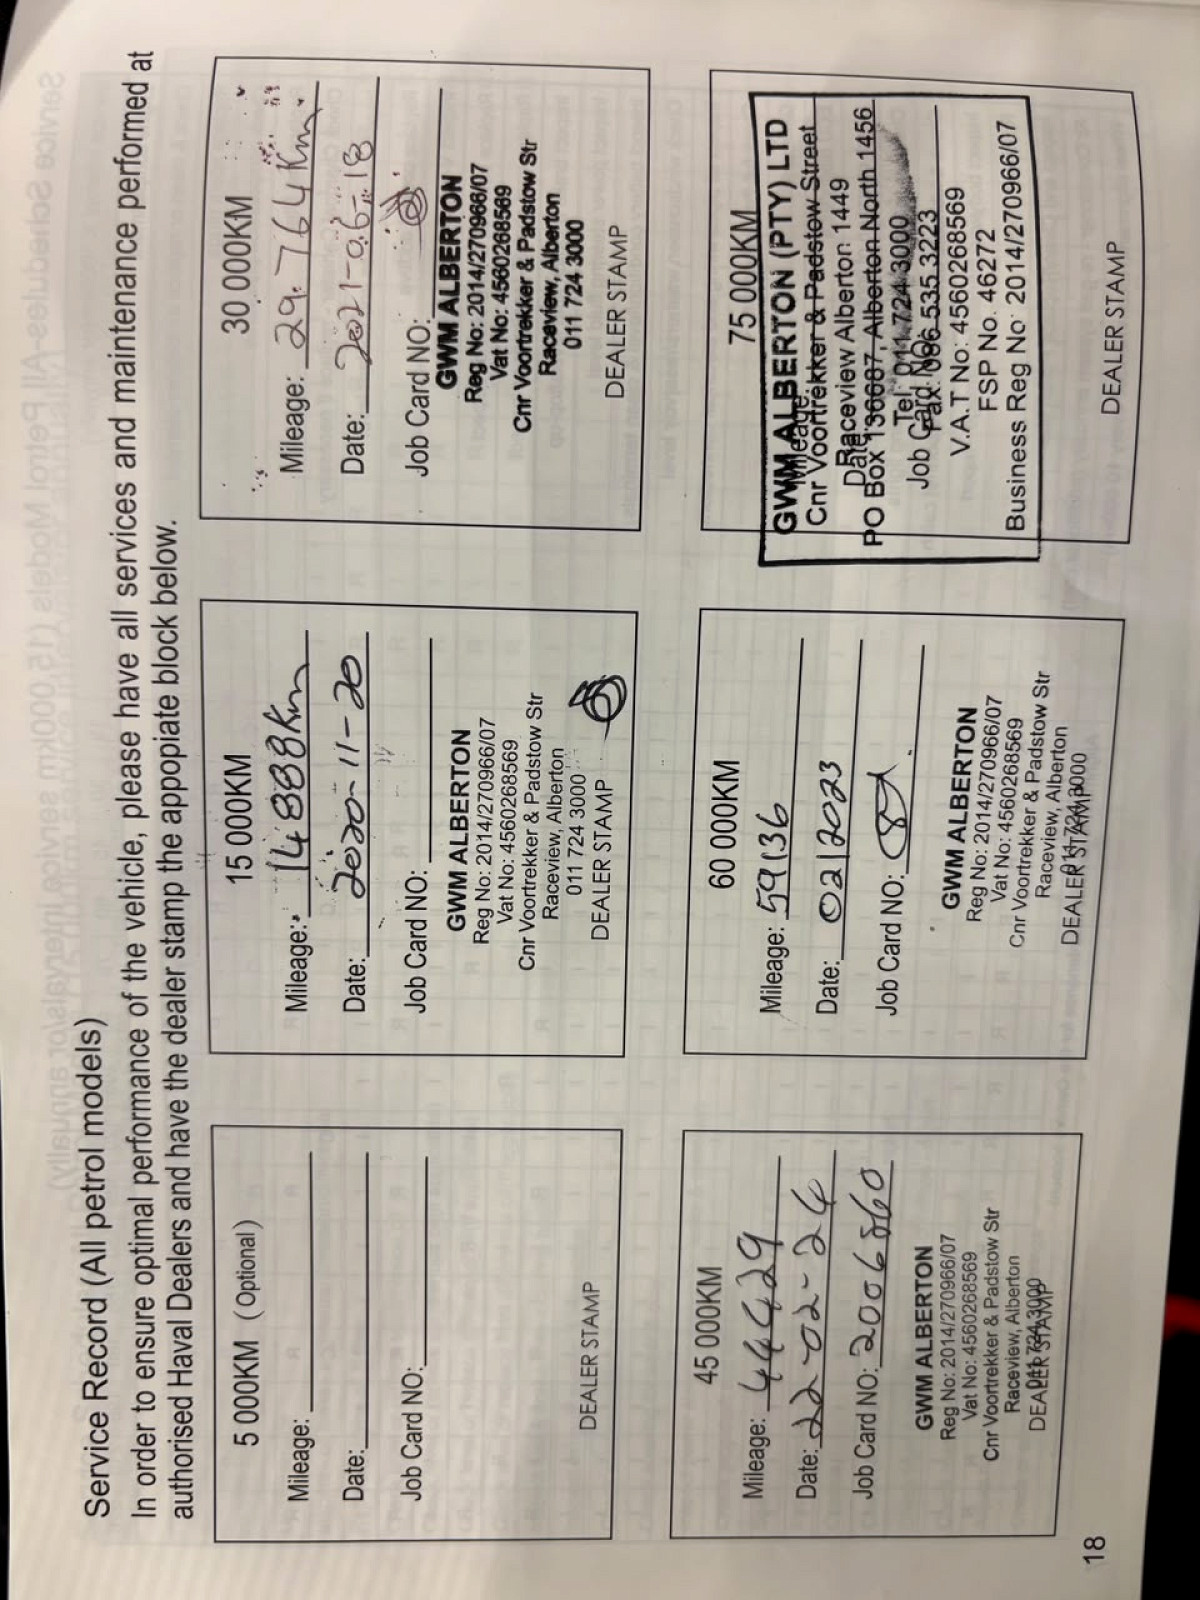 Service Record (All petrol models)
In order to ensure optimal performance of the vehicle, please have all services and maintenance performed at
authorised Haval Dealers and have the dealer stamp the appopiate block below.
5 000KM (Optional)
Mileage:
Date:
Job Card NO:
DEALER STAMP
15 000KM
Mileage: 14888Km
Date: 2020-11-20
Job Card NO:
GWM ALBERTON
Reg No: 2014/270966/07
Vat No: 4560268569
Cnr Voortrekker & Padstow Str
Raceview, Alberton
011 724 3000
DEALER STAMP
30 000KM
Mileage: 29.764Km
Date: 2021-06-18
Job Card NO:
GWM ALBERTON
Reg No: 2014/270966/07
Vat No: 4560268569
Cnr Voortrekker & Padstow Str
Raceview, Alberton
011 724 3000
DEALER STAMP
45 000KM
Mileage: 44429
Date: 22-02-24
Job Card NO: 2006860
GWM ALBERTON
Reg No: 2014/270966/07
Vat No: 4560268569
Cnr Voortrekker & Padstow Str
Raceview, Alberton
011 724 3000
DEALER STAMP
60 000KM
Mileage: 59136
Date: 02/2023
Job Card NO:
GWM ALBERTON
Reg No: 2014/270966/07
Vat No: 4560268569
Cnr Voortrekker & Padstow Str
Raceview, Alberton
011 724 3000
DEALER STAMP
75 000KM
Mileage:
Date:
Job Card NO:
GWM ALBERTON (PTY) LTD
Cnr Voortrekker & Padstow Street
Raceview Alberton 1449
PO Box 136687, Alberton North 1456
Tel: 011 724 3000
Fax: 086 535 3223
V.A.T No: 4560268569
FSP No. 46272
Business Reg No: 2014/270966/07
DEALER STAMP
18